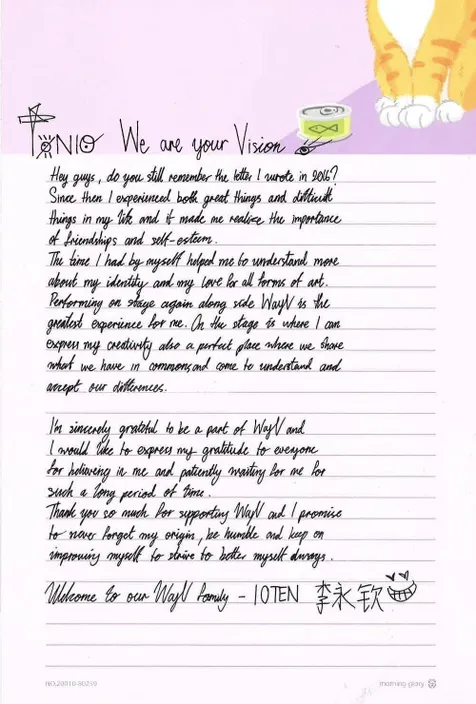 TONIO We are your Vision
Hey guys, do you still remember the letter I wrote in 2016?
Since then I experienced both great things and difficult
things in my life and it made me realize the importance
of friendships and self-esteem.
The time I had by myself helped me to understand more
about my identity and my love for all forms of art.
Performing on stage again along side WayV is the
greatest experience for me. On the stage is where I can
express my creativity also a perfect place where we share
what we have in common and come to understand and
accept our differences.
I'm sincerely grateful to be a part of WayV and
I would like to express my gratitude to everyone
for believing in me and patiently waiting for me for
such a long period of time.
Thank you so much for supporting WayV and I promise
to never forget my origin, be humble and keep on
improving myself to strive to better myself always.
Welcome to our WayV family - 10TEN 李永钦
morning glory